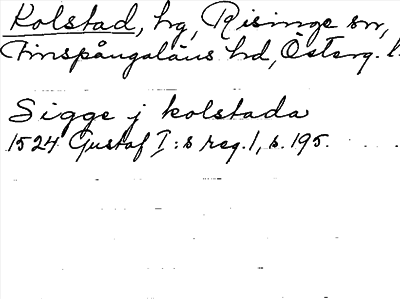 Kolstad, hg, Risinge sn,
Finspångaläns hd, Österg. l.
Sigge j kolstada
1524 Gustaf I:s reg. 1, s. 195.